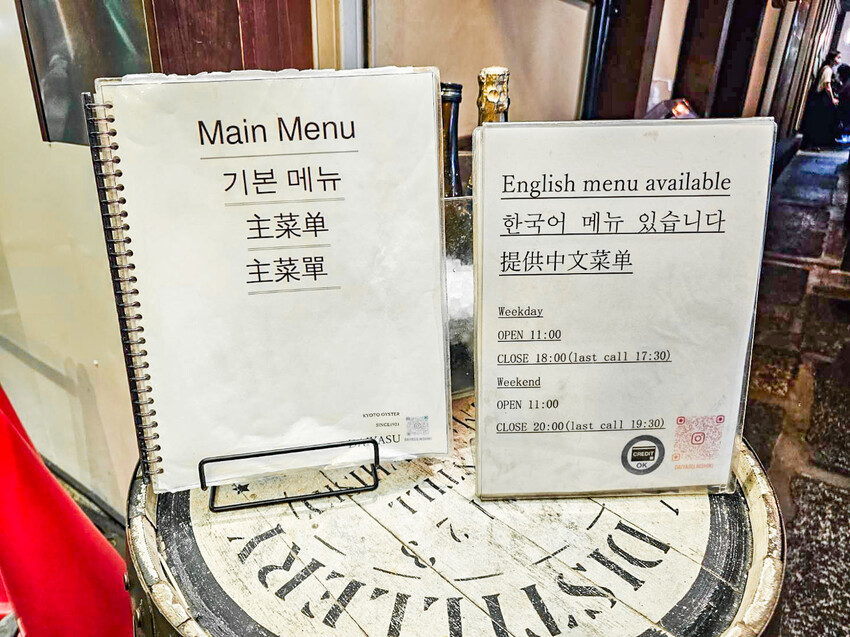 Main Menu
기본 메뉴
主菜单
主菜單
KYOTO OYSTER
English menu available
한국어 메뉴 있습니다
提供中文菜单
Weekday
OPEN 11:00
CLOSE 18:00(last call 17:30)
Weekend
OPEN 11:00
CLOSE 20:00(last call 19:30)
CREDIT
OK
DISTILLERY